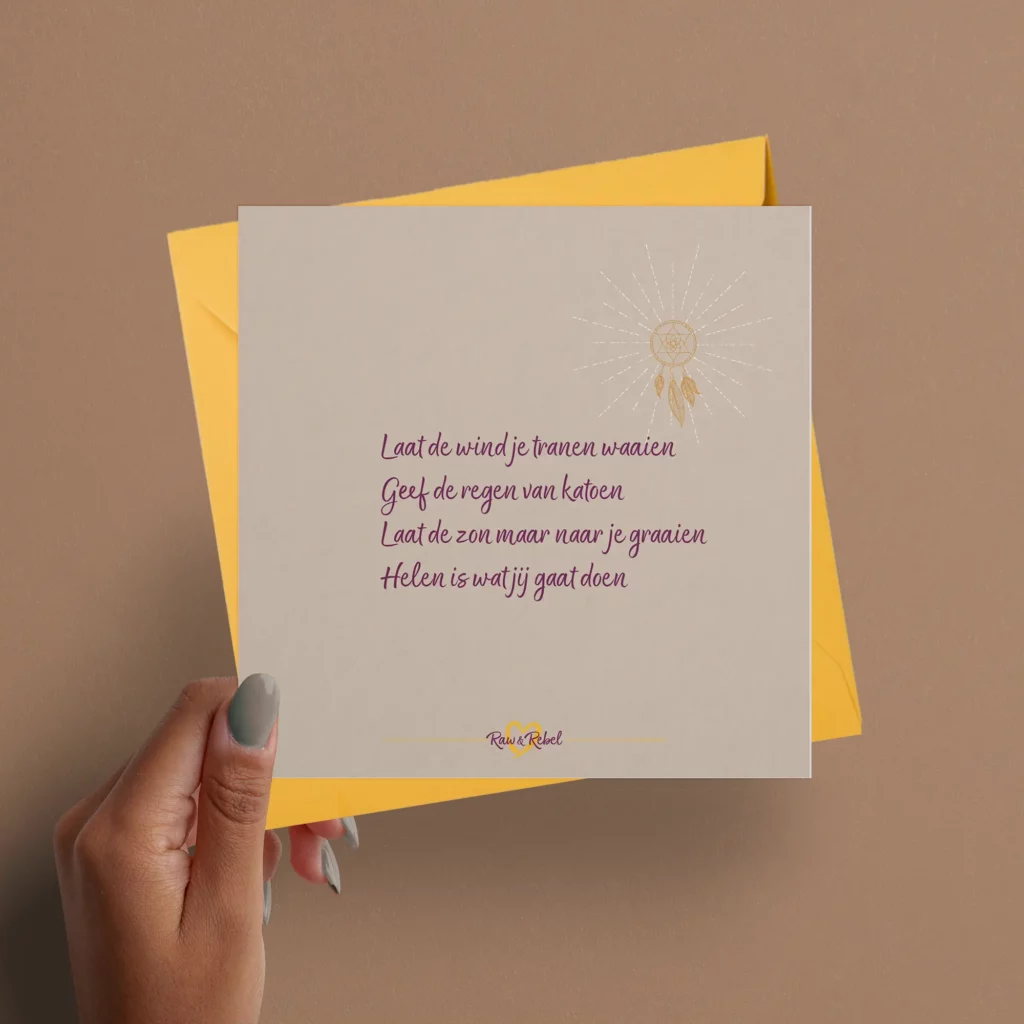 Laat de wind je tranen waaien
Geef de regen van katoen
Laat de zon maar naar je graaien
Helen is wat jij gaat doen
Raw & Rebel